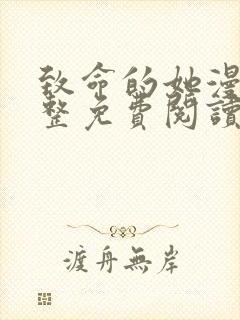 致命的她漫
整免費閱讀
渡舟無岸